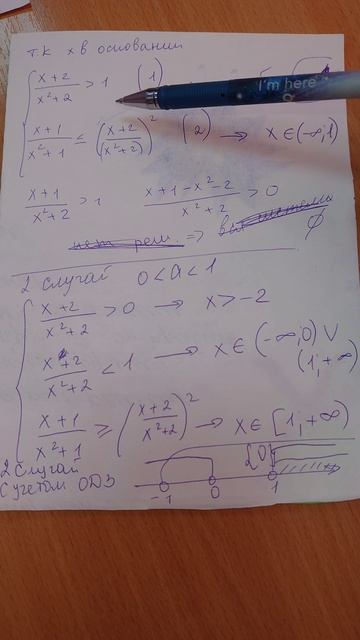 т.к х в основании
x+2 / x²+2 > 1 (1)
I'm here
x+1 / x²+1 ≤ (x+2 / x²+2)² (2) → x ∈ (-∞; 1)
x+1 / x²+2 > 1 x+1-x²-2 / x²+2 > 0
нет реш => ∅
2 случай 0<a<1
x+2 / x²+2 > 0 → x > -2
x+2 / x²+2 < 1 → x ∈ (-∞; 0) ∪ (1; +∞
x+1 / x²+1 ≥ (x+2 / x²+2)² → x ∈ [1; +∞)
2 Случай
С учетом ОДЗ
-1 0 1